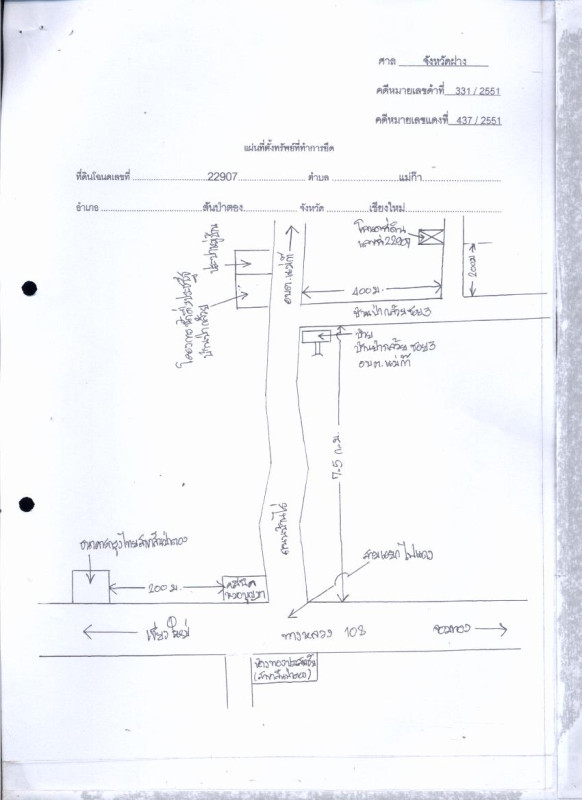 ศาล จังหวัดฝาง
คดีหมายเลขดำที่ 331 / 2551
คดีหมายเลขแดงที่ 437 / 2551
แผนที่ตั้งทรัพย์ที่ทำการยึด
ที่ดินโฉนดเลขที่ 22907 ตำบล แม่ก๊า
อำเภอ สันป่าตอง จังหวัด เชียงใหม่
ประปาหมู่บ้าน
อบต.แม่ก๊า
โฉนดที่ดิน
เลขที่ 22907
200 ม.
400 ม.
บ้านป่ากล้วยซอย 3
ป้าย
บ้านป่ากล้วย ซอย 3
อบต. แม่ก๊า
7.5 ก.ม.
ธนาคารกรุงไทยสาขาสันป่าตอง
200 ม.
สามแยกไฟแดง
เชียงใหม่
ทางหลวง 108
จอมทอง
(สาขาสันป่าตอง)